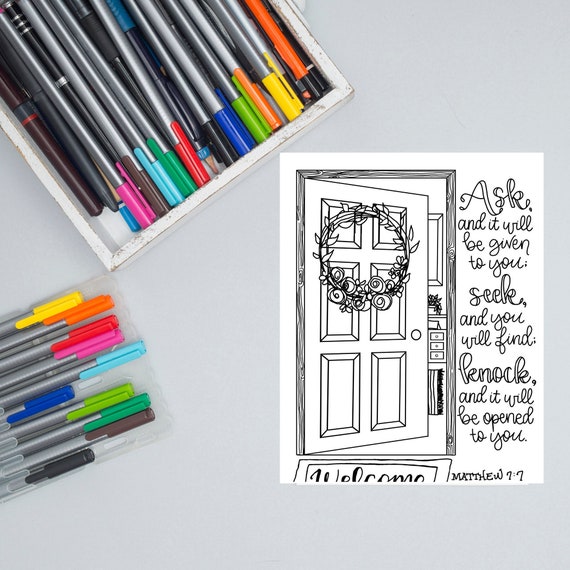 Ask,
and it will
be given
to you;
seek,
and you
will find;
knock,
and it will
be opened
to you.
MATTHEW 7:7
Welcome